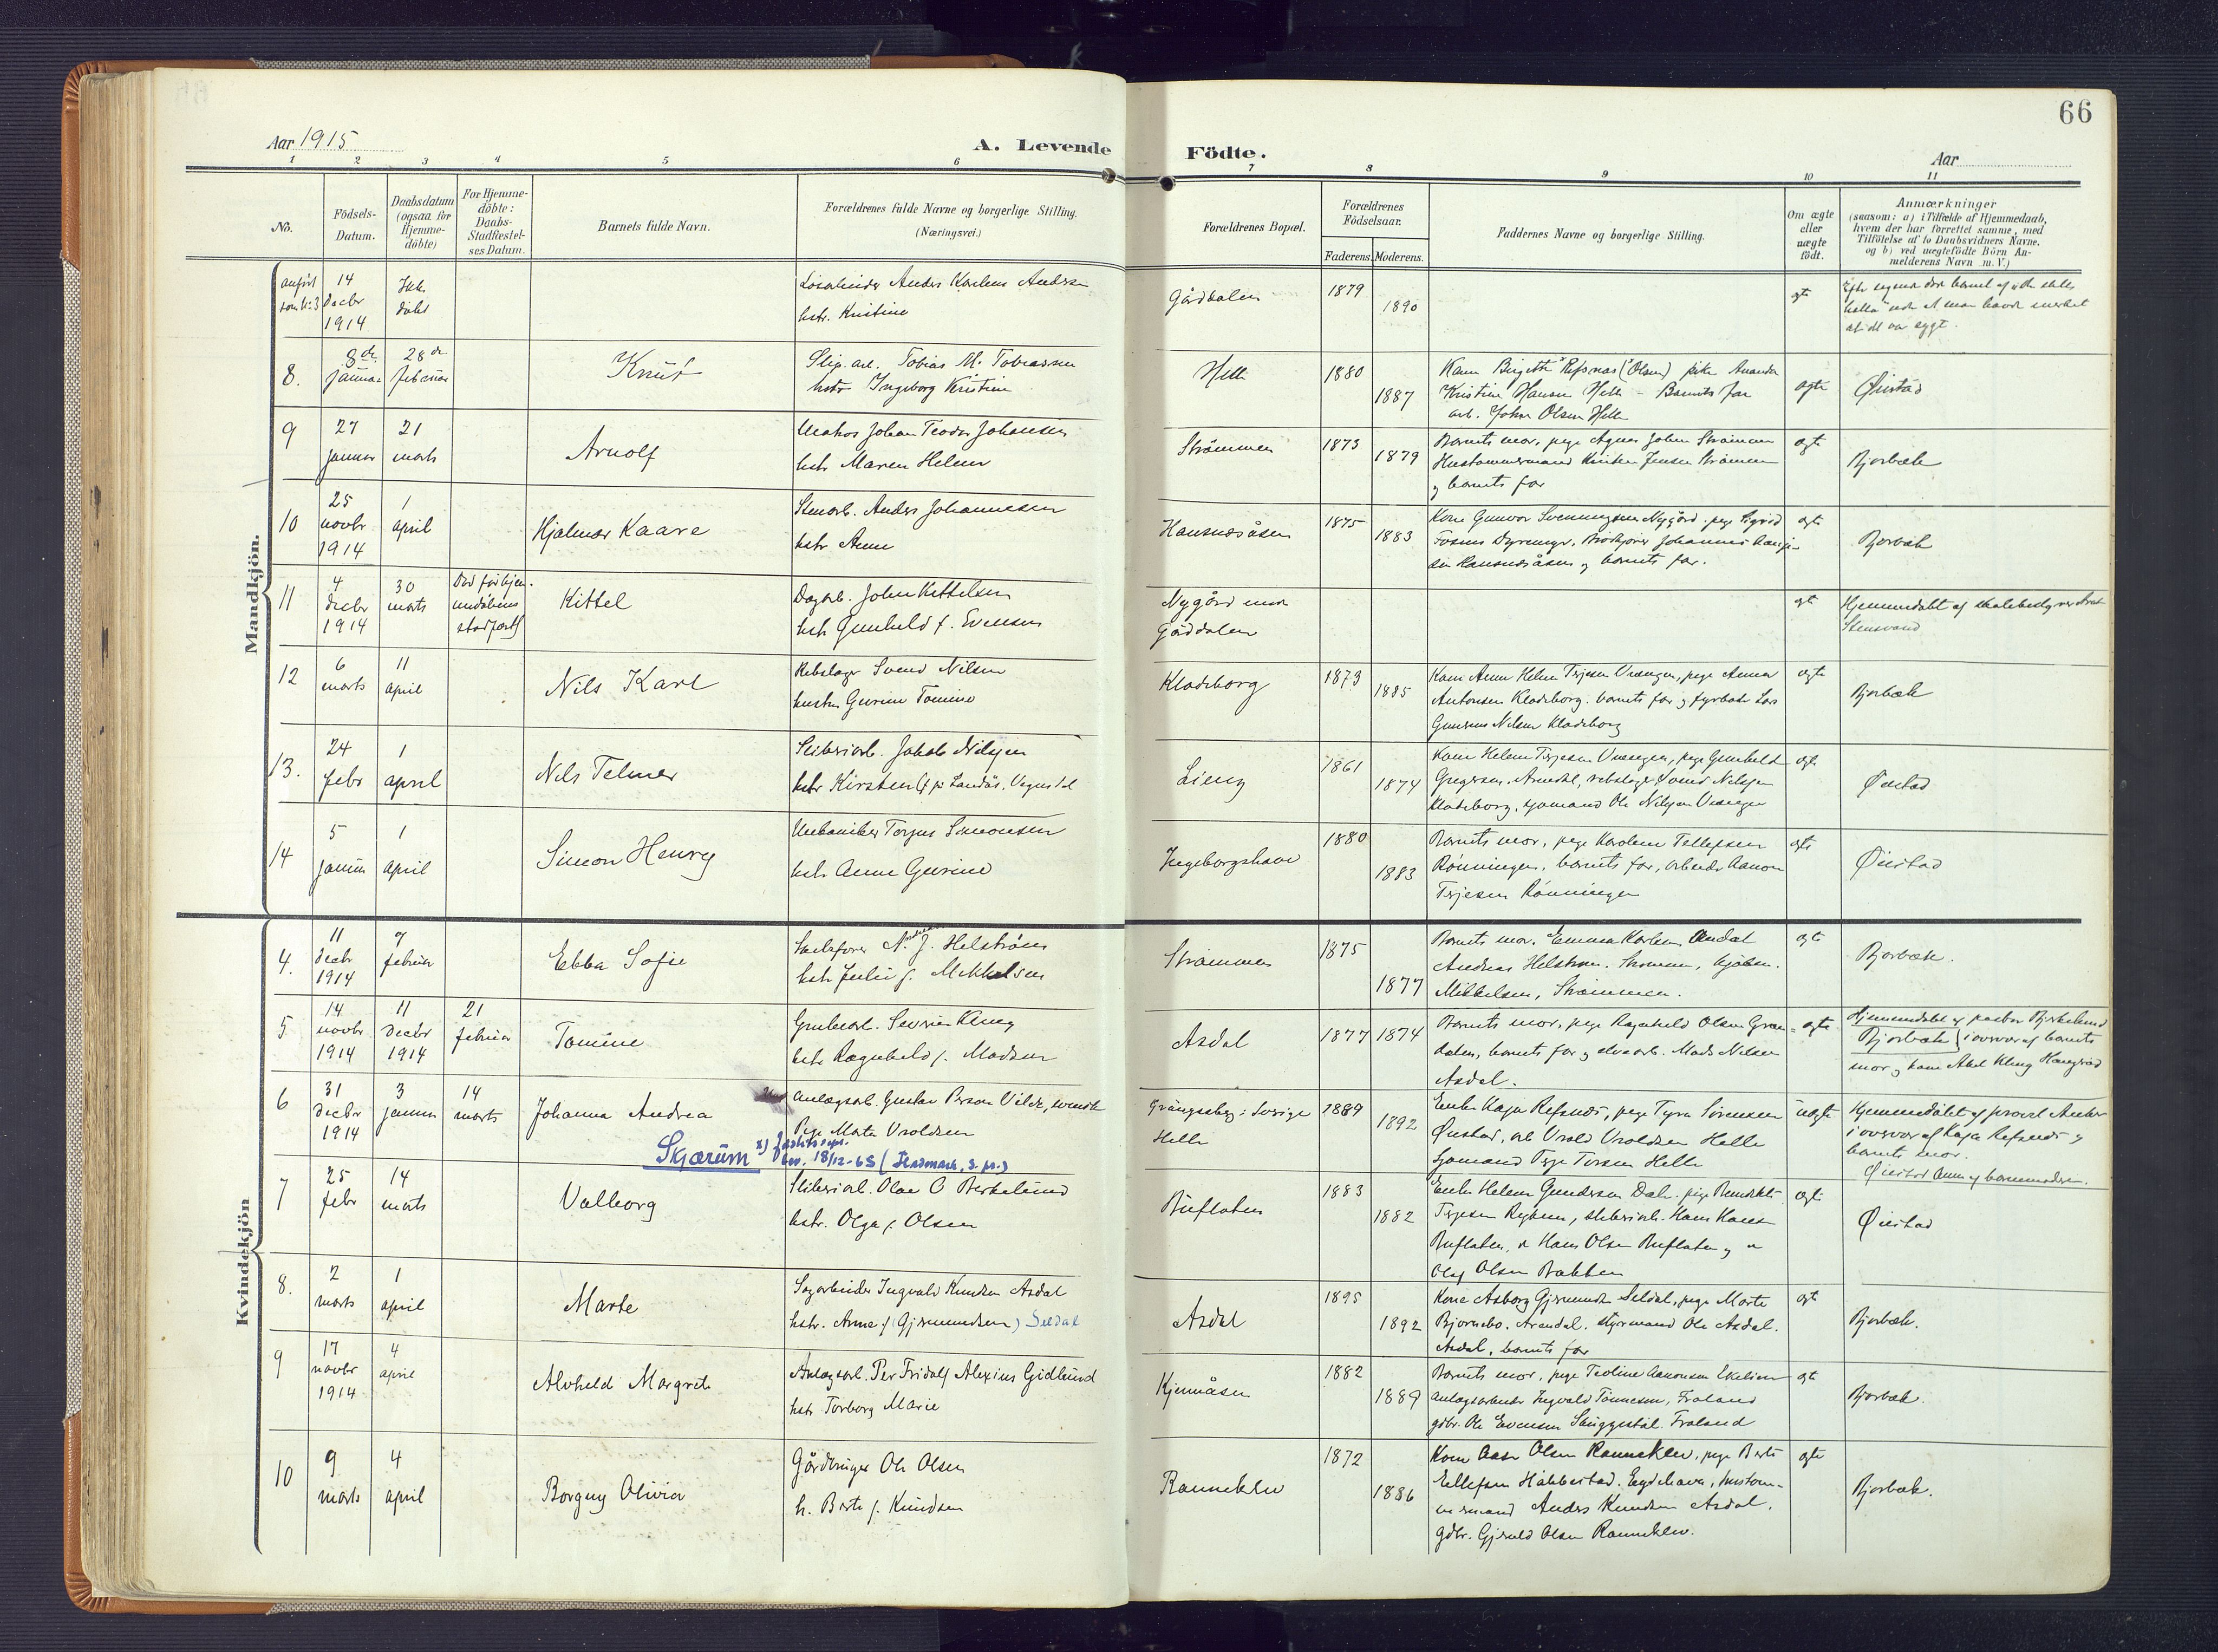 66
Aar 1915
A. Levende
Födte.
Aar
1 2 3 4 5 6 7 8 9 10 11
No.
Födsels-
Datum.
Daabsdatum
(ogsaa for
Hjemme-
döbte)
For Hjemme-
döbte:
Daabs-
Stadfæstel-
ses Datum.
Barnets fulde Navn.
Forældrenes fulde Navne og borgerlige Stilling.
(Næringsvei.)
Forældrenes Bopæl.
Forældrenes
Födselsaar.
Faderens. Moderens.
Faddernes Navne og borgerlige Stilling.
Om ægte
eller
uægte
födt.
Anmærkninger
(saasom: a) i Tilfælde af Hjemmedaab,
hvem der har forrettet samme, med
Tilföielse af to Daabsvidners Navne,
og b) ved uægtefödte Börn An-
melderens Navn m. V.)
Mandkjön.
anført
som Nr. 3
14
Decbr
1914
Ikke
døbt
Anders
hstr. Kristine
Gårddalen
1879
1890
8.
8de
januar
28de
februar
Knut
Slip. arb. Tobias M. Tobiassen
hstr Ingeborg Kristine
Helle
1880
1887
Kone Birgitte Refsnæs (Olsen) pike Amanda
Kristine Hansen Helle - Barnets far
arb. Johan Olsen Helle
ægte
Øiestad
9
27
januar
21
marts
Arnolf
Matros Johan Teodor Johansen
hstr Maren Helene
Strömmen
1873
1879
Barnets mor, pige Agnes Johnsen Strömmen
og barnets far
ægte
Bjorbæk
10
25
novbr
1914
1
april
Hjalmar Kaare
Stenarb. Anders Johannesen
hstr Anne
Hansnesåsen
1875
1883
Kone Gunvor Svenningsen Nygård, pige Sigrid
Hansnesåsen og barnets far.
ægte
Bjorbæk
11
4
decbr
1914
30
marts
Død før hjem-
medåbens
stadfæst.
Kittel
Dagarb. John Kittelsen
hstr Gunhild f. Evensen
Nygård under
Gårddalen
ægte
Hjemmedøbt af skolebestyrer
Stensvand
12
6
marts
11
april
Nils Karl
Rebslager Svend Nilsen
hustru Gurine Tomine
Kladeborg
1873
1885
Kone Anne Helene Terjesen Vrengen, pige Anna
Antonsen Kladeborg, barnets far og fyrbøter Lars
Gunerius Nilsen Kladeborg
ægte
Bjorbæk
13.
24
febr
1
april
Nils Telmer
Sliberiarb. Jakob Nilsen
hstr Kirsten
Lieng
1861
1874
Kone Helene Terjesen Vrengen, pige Gunhild
Gregersen, Arendal, rebslager Svend Nilsen
Kladeborg, sjømand Ole Nilsen Vrengen
ægte
Øiestad
14
5
januar
1
April
Simon Henry
Mekaniker Torjus Simonsen
hstr Anne Gurine
Ingeborgshave
1880
1883
Barnets mor, pige Karoline Tellefsen
Rönningen, barnets far, arbeider Aanon
Terjesen Rönningen
ægte
Øiestad
Kvindekjön
4.
11
decbr
1914
7
februar
Ebba Sofie
N. Andreas J. Helström
hstr Julie f. Mikkelsen
Strömmen
1875
1877
Barnets mor, Emma Karlsen Arendal
Andreas Helström, Strommen,
Mikkelsen, Strömmen.
ægte
Bjorbæk.
5
14
novbr
1914
11
decbr
1914
21
februar
Tomine
Grubearb. Severin Kling
hstr Ragnhild f. Madsen
Asdal
1877
1874
Barnets mor, pige Ragnhild Olsen Gran-
dalen, barnets far og elvearb. Mads Nilsen
Asdal.
ægte
Hjemmedøbt af pastor Birkeland
Bjorbæk i overvær af barnets
mor og kone Abel Kling
6
31
decbr
1914
3
januar
14
marts
Johanna Andrea
Skjærum
Anlægsarb. Gustav Person Vilde, svensk
Pige Marta Vroldsen
18/12-65
Grängesberg i Sverige
Helle
1889
1892
Enke Kaja Refsnes, pige Tyra Sörensen
Øiestad, arb Vrold Vroldsen Helle
Sjømand Terje Terjesen Helle
uægte
Hjemmedøbt af provst
i overvær af Kaja Refsnes og
barnets mor.
7
25
febr
14
marts
Valborg
Sliberiarb. Olav O Berkelund
hstr. Olga f. Olsen
Buflaten
1883
1882
Enke Helene Gundersen Dale, pige Benedikte
Terjesen Rykene, sliberiarb. Hans Hansen
Buflaten, Hans Olsen Buflaten og
Olaf Olsen Bakken
ægte
Øiestad
8.
2
marts
1
april
Marte
Sagarbeider Ingvald Knudsen Asdal
hstr. Anne f. (Gjermundsen) Seldal
Asdal
1895
1892
Kone Asborg Gjermundsen Seldal, pige Marte
Bjornebo, Arendal, styrmand Ole Asdal,
Asdal, barnets far
ægte
Bjorbæk.
9
17
novbr
1914
4
april
Alvhild Margrete
Anlægsarb. Per Fridolf Alexius Gidlund
hstr Torborg Marie
Kjennåsen
1882
1889
Barnets mor, pige Teoline Aanonsen Ekelien
anlægsarbeider Ingvald Tönnesen, Froland
gdbr. Ole Evensen Froland
ægte
Bjorbæk.
10
9
marts
4
april
Borgny Olivia
Gårdbruger Ole Olsen
h. Berte f. Knudsen
Ranneklev
1872
1886
Kone Aase Olsen Ranneklev, pige Berte
Ellefsen Håbbestad, Eydehavn, hustøm-
mermand Anders Knudsen Asdal,
gdbr. Gjeruld Olsen Ranneklev.
ægte
Bjorbæk.